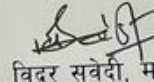 विदर सवेदी, म